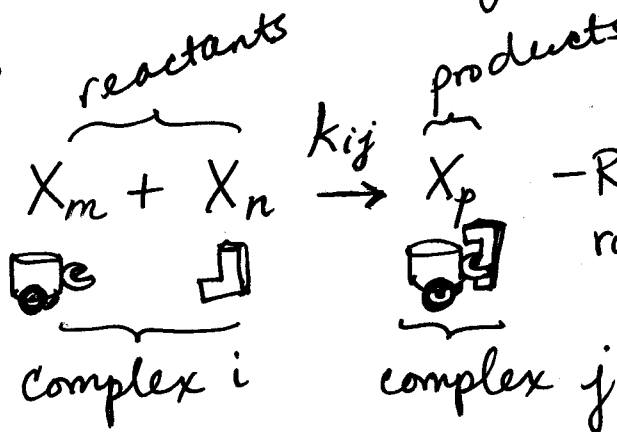 reactants products
kij
Xm + Xn → Xp
complex i complex j